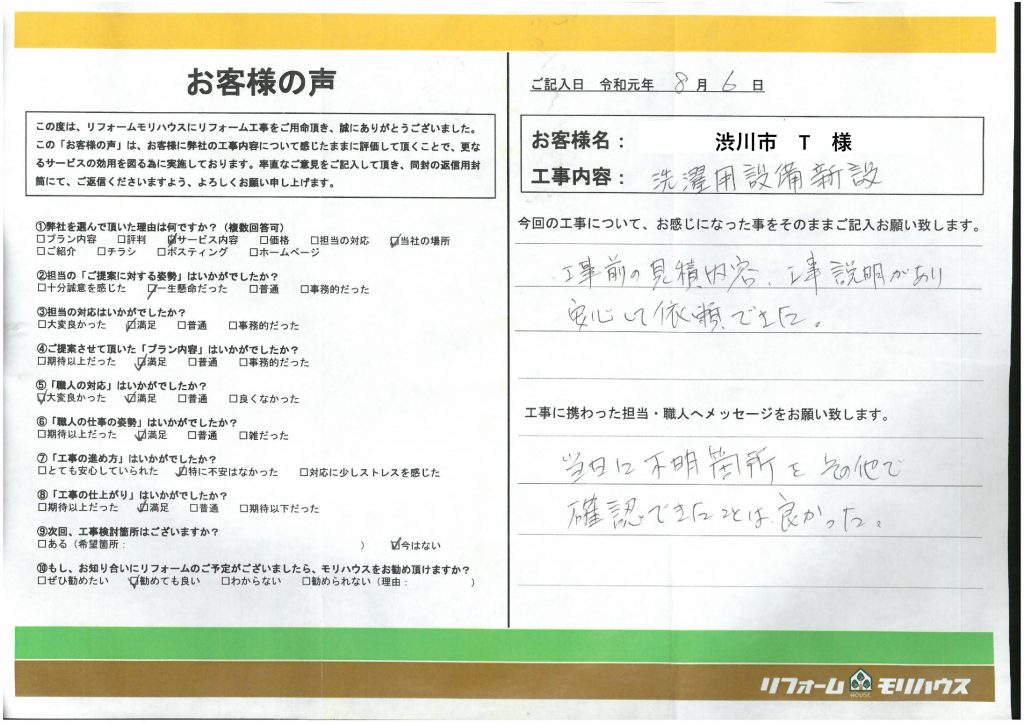 お客様の声
この度は、リフォームモリハウスにリフォーム工事をご用命頂き、誠にありがとうございました。
この「お客様の声」は、お客様に弊社の工事内容について感じたままに評価して頂くことで、更な
るサービスの効用を図る為に実施しております。率直なご意見をご記入して頂き、同封の返信用封
筒にて、ご返信くださいますよう、よろしくお願い申し上げます。
①弊社を選んで頂いた理由は何ですか？（複数回答可）
□プラン内容 □評判 ☑サービス内容 □価格 □担当の対応 ☑当社の場所
□ご紹介 □チラシ □ポスティング □ホームページ
②担当の「ご提案に対する姿勢」はいかがでしたか？
□十分誠意を感じた ☑一生懸命だった □普通 □事務的だった
③担当の対応はいかがでしたか？
□大変良かった ☑満足 □普通 □事務的だった
④ご提案させて頂いた「プラン内容」はいかがでしたか？
□期待以上だった ☑満足 □普通 □事務的だった
⑤「職人の対応」はいかがでしたか？
☑大変良かった ☑満足 □普通 □良くなかった
⑥「職人の仕事の姿勢」はいかがでしたか？
□期待以上だった ☑満足 □普通 □雑だった
⑦「工事の進め方」はいかがでしたか？
□とても安心していられた ☑特に不安はなかった □対応に少しストレスを感じた
⑧「工事の仕上がり」はいかがでしたか？
□期待以上だった ☑満足 □普通 □期待以下だった
⑨次回、工事検討箇所はございますか？
□ある（希望箇所： ） ☑今はない
⑩もし、お知り合いにリフォームのご予定がございましたら、モリハウスをお勧め頂けますか？
□ぜひ勧めたい ☑勧めても良い □わからない □勧められない（理由： ）
ご記入日 令和元年 8月 6日
お客様名： 渋川市 T 様
工事内容： 洗濯用設備新設
今回の工事について、お感じになった事をそのままご記入お願い致します。
工事前の見積内容、工事説明があり
安心して依頼できた。
工事に携わった担当・職人へメッセージをお願い致します。
当日に不明箇所をその他で
確認できたことは良かった。
リフォーム HOUSE モリハウス